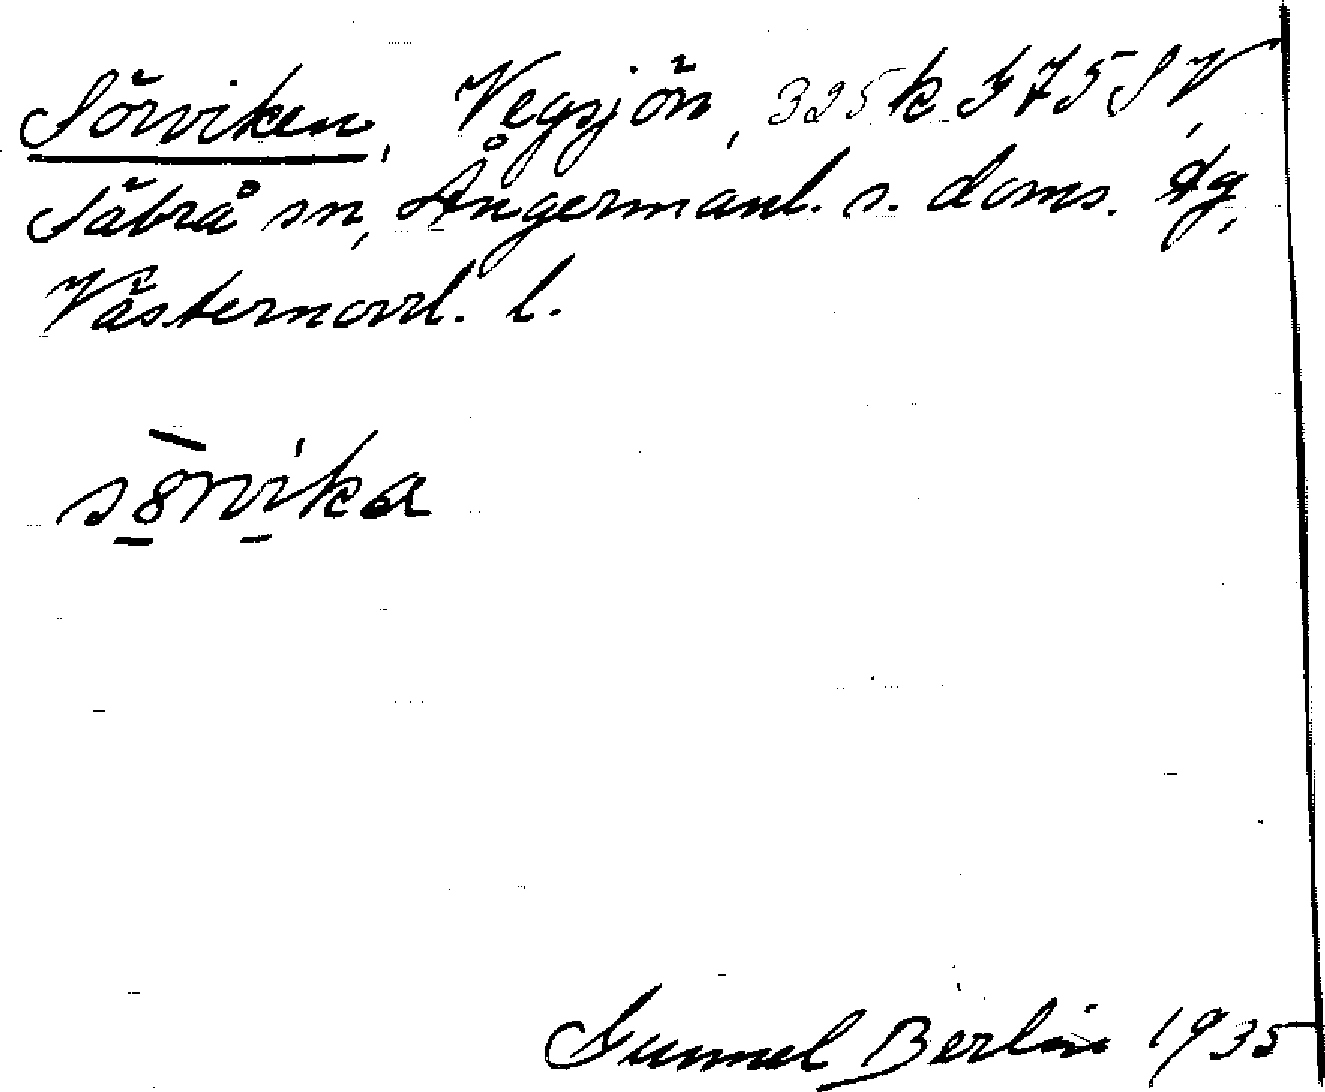 Sörviken, Vegsjön, 325 k 375 SV,
Säbrå sn, Ångermanl. s. doms. tg,
Västernorrl. l.
sörvika
Gunnel Berlin 1935